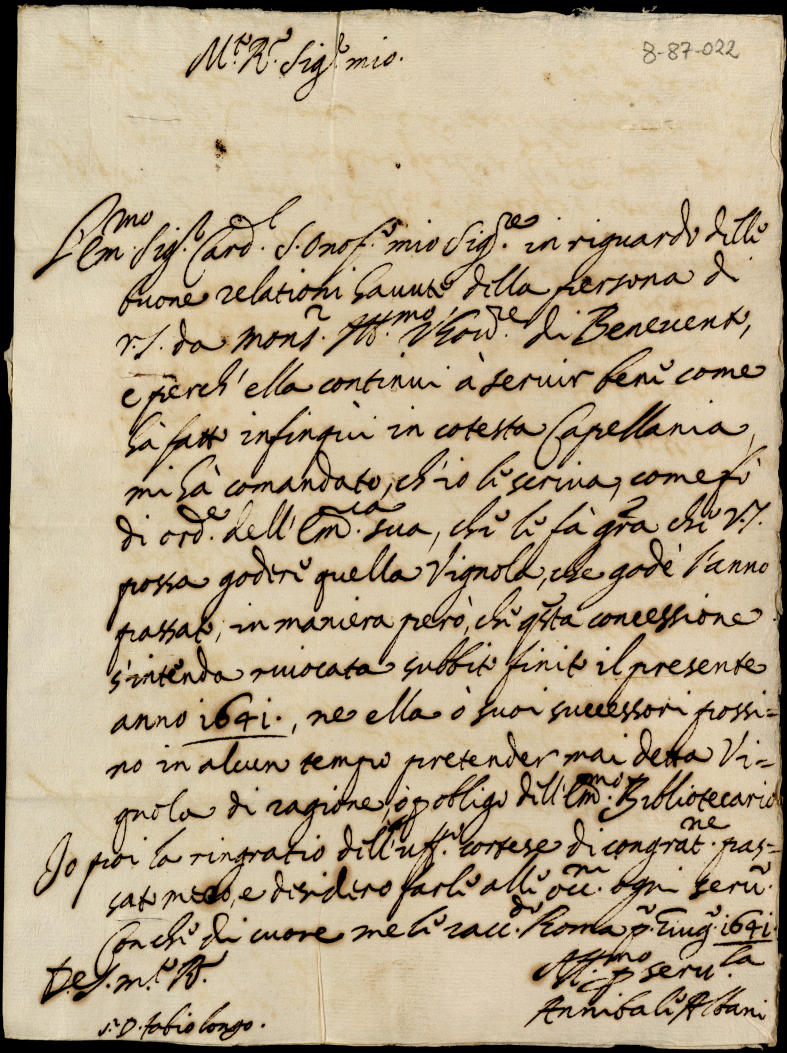 8-87-022
M.to R.do Sig.r mio.
L'Em.mo Sig.r Card.l S. Onof.o mio Sig.re in riguardo delle
buone relationi havute della persona di
V.S. da Mons.r Ill.mo di Benevento,
e perch'ella continui à servir bene come
hà fatto infinqui in cotesta Capellania,
mi hà comandato, ch'io le scriva, come fò
di ord.e dell'Em.za sua, che le fà gra che V.S.
possa godere quella Vignola, che godè l'anno
passato, in maniera però, che qsta concessione
s'intenda rivocata subbito finito il presente
anno 1641., ne ella ò suoi successori possi=
no in alcun tempo pretender mai detta Vi=
gnola di ragione, ò p obligo dell'Em.mo Bibliotecario
Io poi la ringratio dell'uff.o cortese di congrat.ne pas=
sato meco, e desidero farle alle occ.ni ogni serv.o
Con che di cuore me le racc.do Roma p.o Giug.o 1641.
De S. m.to R.
Aff.mo p serv.la
Annibale Albani
S.r D. Fabio Longo.